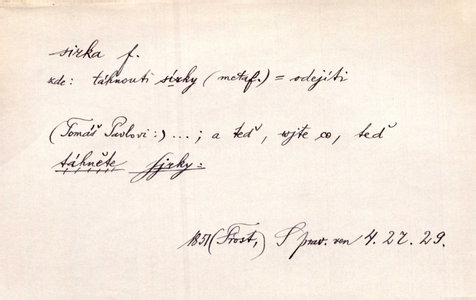 sirka f.
zde: táhnouti sírky (metaf.) = odejíti
(Tomáš Pavlovi:) ...; a teď, wjte co, teď
táhněte sjrky:
1851 (Prost,) S prav. ven 4. 27. 29.